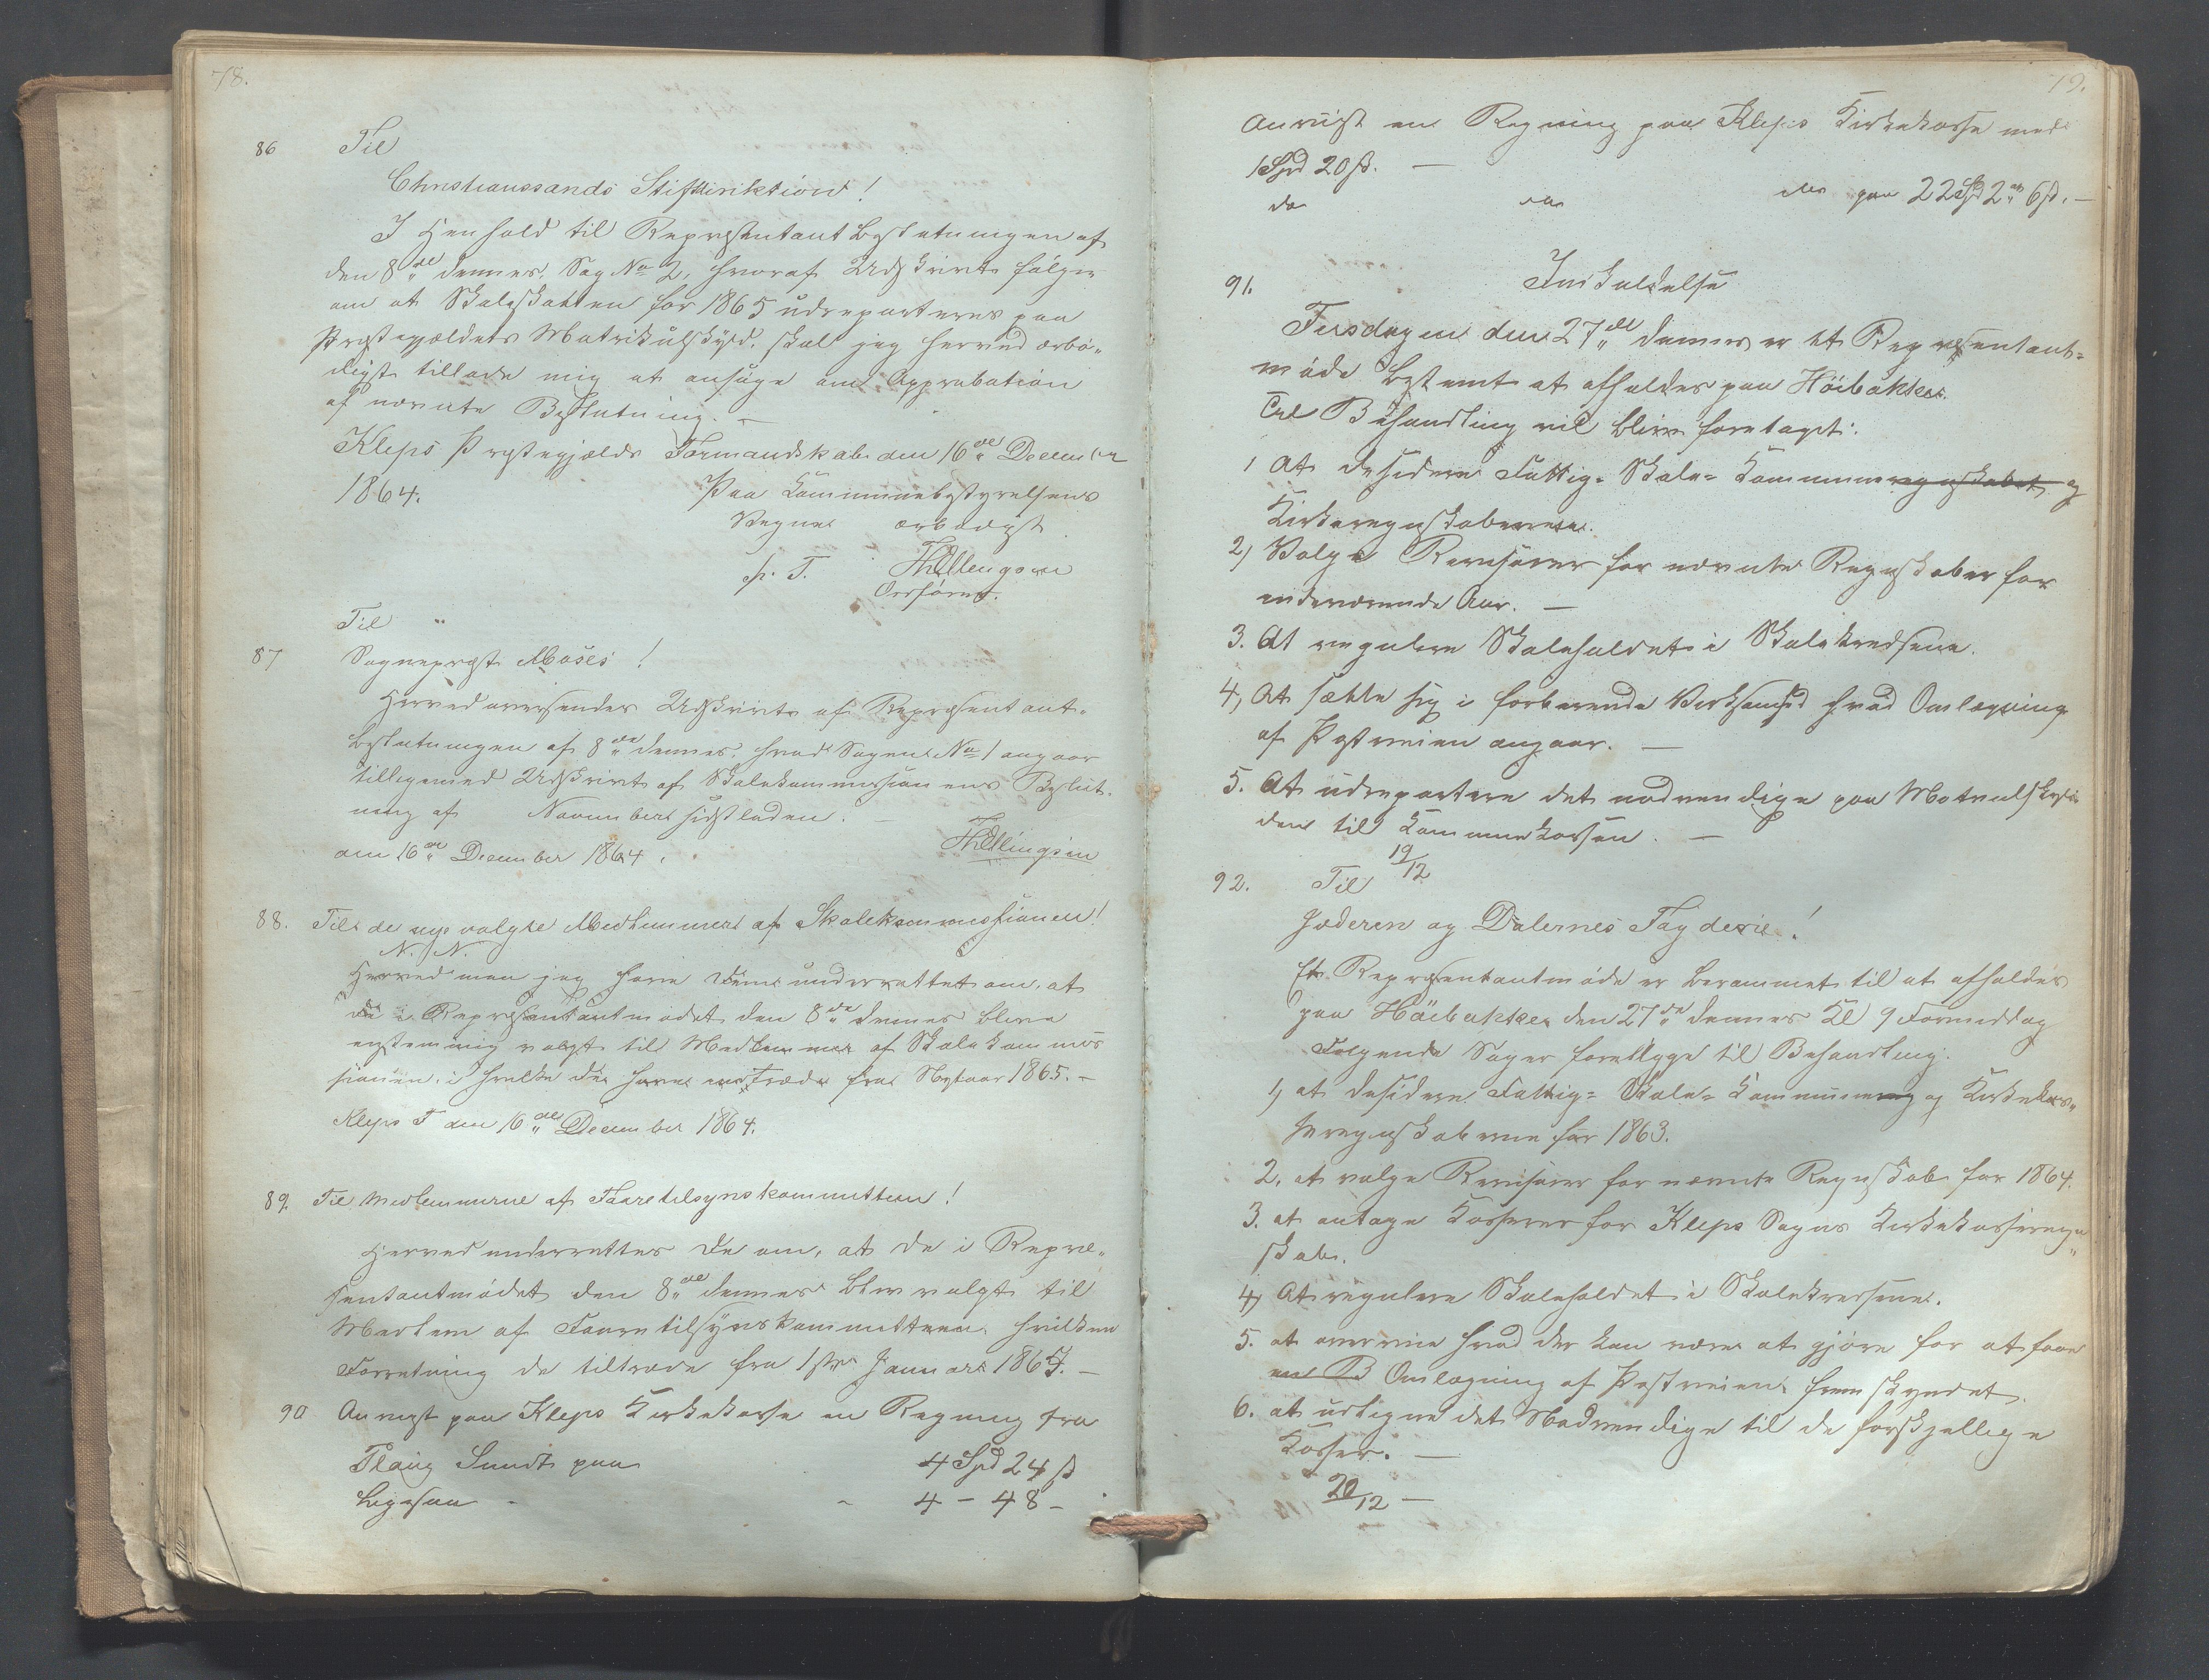 78.
86 Til
Christianssands Stiftdirektion!
I Henhold til Repræsentantbeslutningen af
den 8de dennes, Sag No 2, hvoraf Udskrivt følger
om at Skoleskatten for 1865 udreparteres paa
Præstegjældets Matrikulskyld, skal jeg herved ærbø„
digst tillade mig at ansøge om Approbation
af nævnte Beslutning. —
Kleps Præstegjælds Formandskab den 16de December
1864. Paa Kommunebestyrelsens
Vegne ærbødigst
p. T.
Ordfører.
Til
87 Sognepræst Moses!
Herved oversendes Udskrivt af Repræsentant-
beslutningen af 8de dennes, hvad Sagen No 1 angaar
tilligemed Udskrivt af Skolekommissionens Beslut-
ning af November sidstleden. —
den 16de December 1864.
88. Til de nye valgte Medlemmer af Skolekommissionen!
N. N.
Herved maa jeg have Dem underrettet om, at
De i Repræsentantmødet den 8de dennes bleve
enstemmig valgt til Medlemmer af Skolekommis
sionen, i hvilke De have indtræde fra Nytaar 1865. —
Kleps F den 16de December 1864.
89. Til Medlemmerne af Faaretilsynskommitteen!
Herved underrettes De om, at De i Repræ„
sentantmødet den 8de dennes blev valgt til
Medlem af Faaretilsynskommitteen, hvilken
Forretning De tiltræde fra 1ste Januar 1865. —
90 Anvist paa Kleps Kirkekasse en Regning fra
Plaug Sundt paa 4 Spd 24 ß
4 – 48 –
79.
Anvist en Regning paa Kleps Kirkekasse med
1 Spd 20 ß. —
do do do paa 22 Spd 2 6 ß. —
91. Indkaldelse
Tirsdagen den 27de dennes er et Repræsentant=
møde bestemt at afholdes paa Höibakken.
Til Behandling vil blive foretaget:
1 At desidere Fattig- Skole- Kommuneregnskabet og
Kirkeregnskaberne.
2) Valge Revisorer for nævnte Regnskaber for
indeværende Aar. —
3. At regulere Skoleholdet i Skolekredsene.
4, At sætte sig i forberende Virksomhed hvad Omlægning
af Postveien angaar. —
5. At udrepartere det nødvendige paa Matrulskyl-
den til Kommunekassen. —
19/12
92. Til
Jæderen og Dalernes Fogderie!
Et Repræsentantmøde er berammet til at afholdes
paa Höibakken den 27de dennes Kl 9 Formiddag
Følgende Sager foreligge til Behandling:
1, at desidere Fattig= Skole= Kommune og Kirkekas„
seregnskaberne for 1863.
2, at valge Revisorer for nævnte Regnskab for 1864.
3. at antage Kasserer for Kleps Sogns Kirkekasseregn„
skab.
4, At regulere Skoleholdet i Skolekredsene.
5. at overveie hvad der kan være at gjøre for at faae
en B Omlægning af Postveien fremskyndet.
6. at udligne det Nødvendige til de forskjellige
Kasser. —
20/12 —